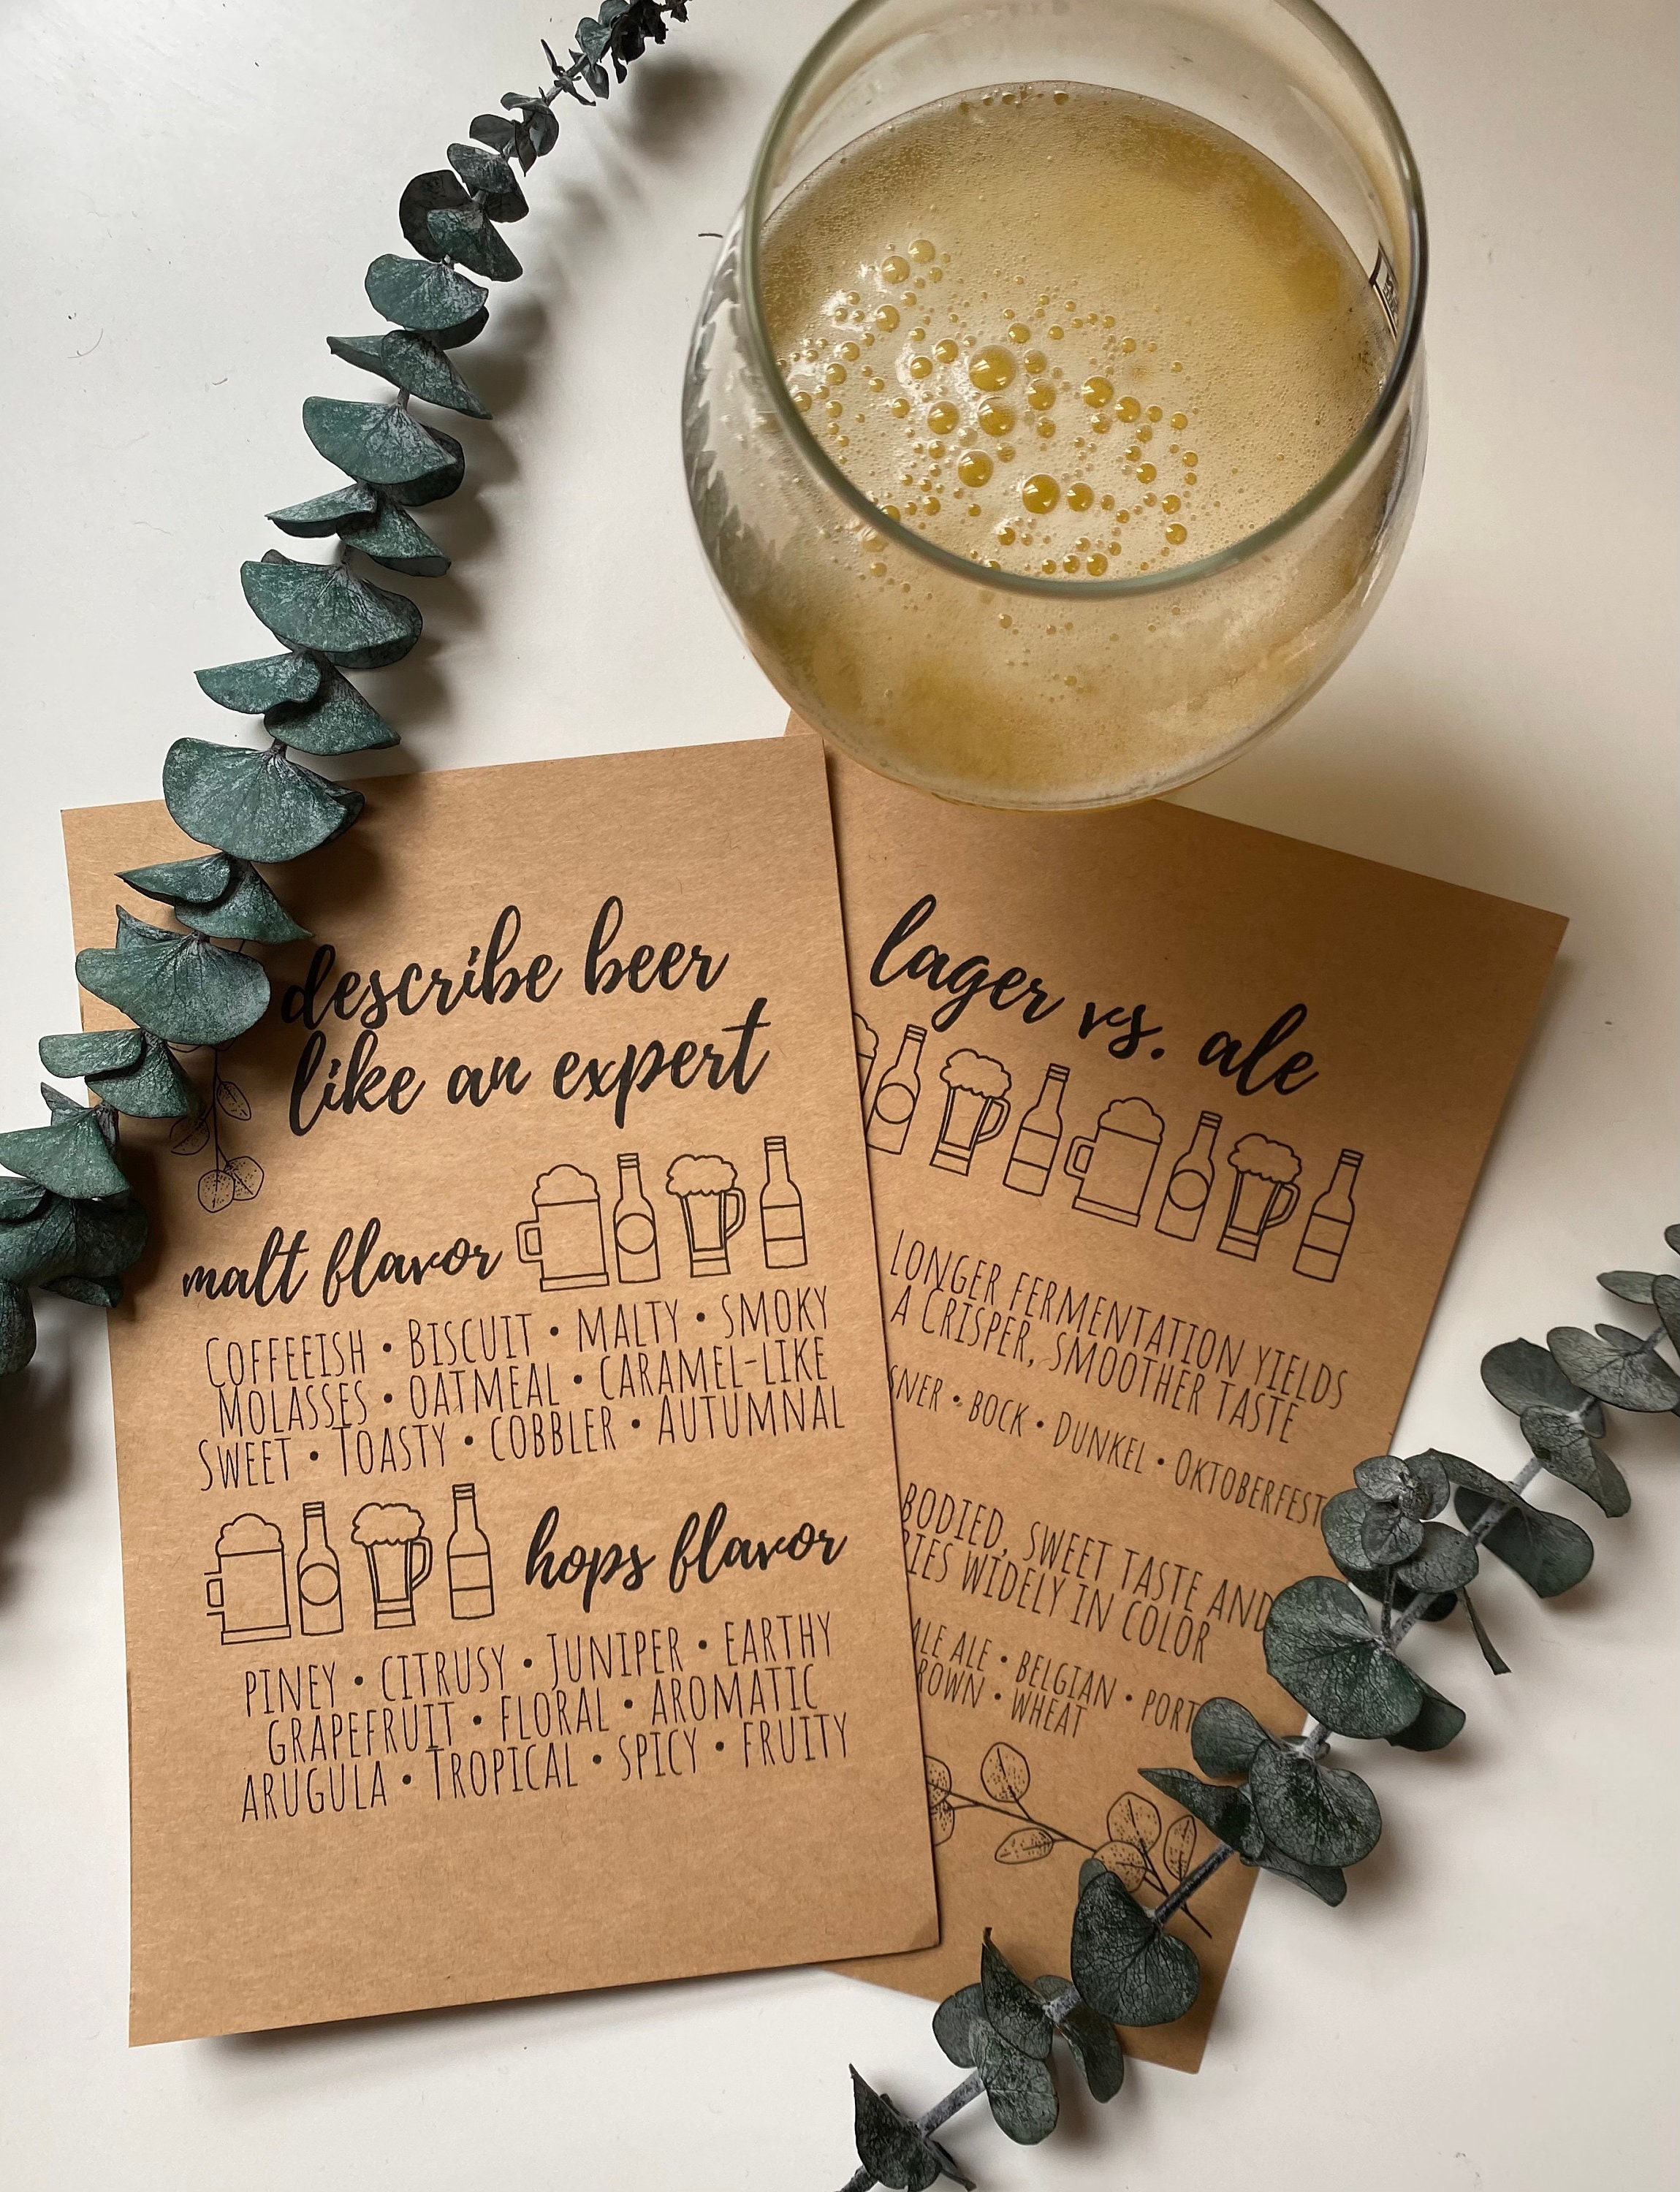 describe beer
like an expert
malt flavor
COFFEEISH • BISCUIT • MALTY • SMOKY
MOLASSES • OATMEAL • CARAMEL-LIKE
SWEET • TOASTY • COBBLER • AUTUMNAL
hops flavor
PINEY • CITRUSY • JUNIPER • EARTHY
GRAPEFRUIT • FLORAL • AROMATIC
ARUGULA • TROPICAL • SPICY • FRUITY
lager vs. ale
LONGER FERMENTATION YIELDS
A CRISPER, SMOOTHER TASTE
• BOCK • DUNKEL • OKTOBERFEST
BODIED, SWEET TASTE AND
WIDELY IN COLOR
ALE • BELGIAN •
• WHEAT